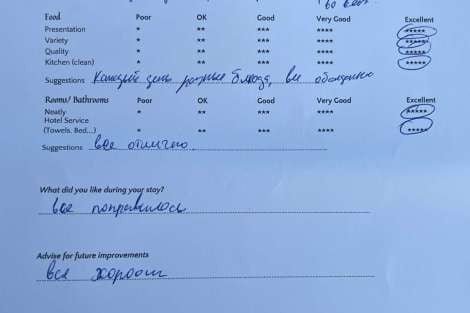 во всем
Food Poor OK Good Very Good Excellent
Presentation * ** *** **** *****
Variety * ** *** **** *****
Quality * ** *** **** *****
Kitchen (clean) * ** *** **** *****
Suggestions Каждый день разные блюда, все
Rooms/ Bathrooms Poor OK Good Very Good Excellent
Neatly * ** *** **** *****
Hotel Service
(Towels. Bed...) * ** *** **** *****
Suggestions все отлично
What did you like during your stay?
все понравилось
Advise for future improvements
все хорошо